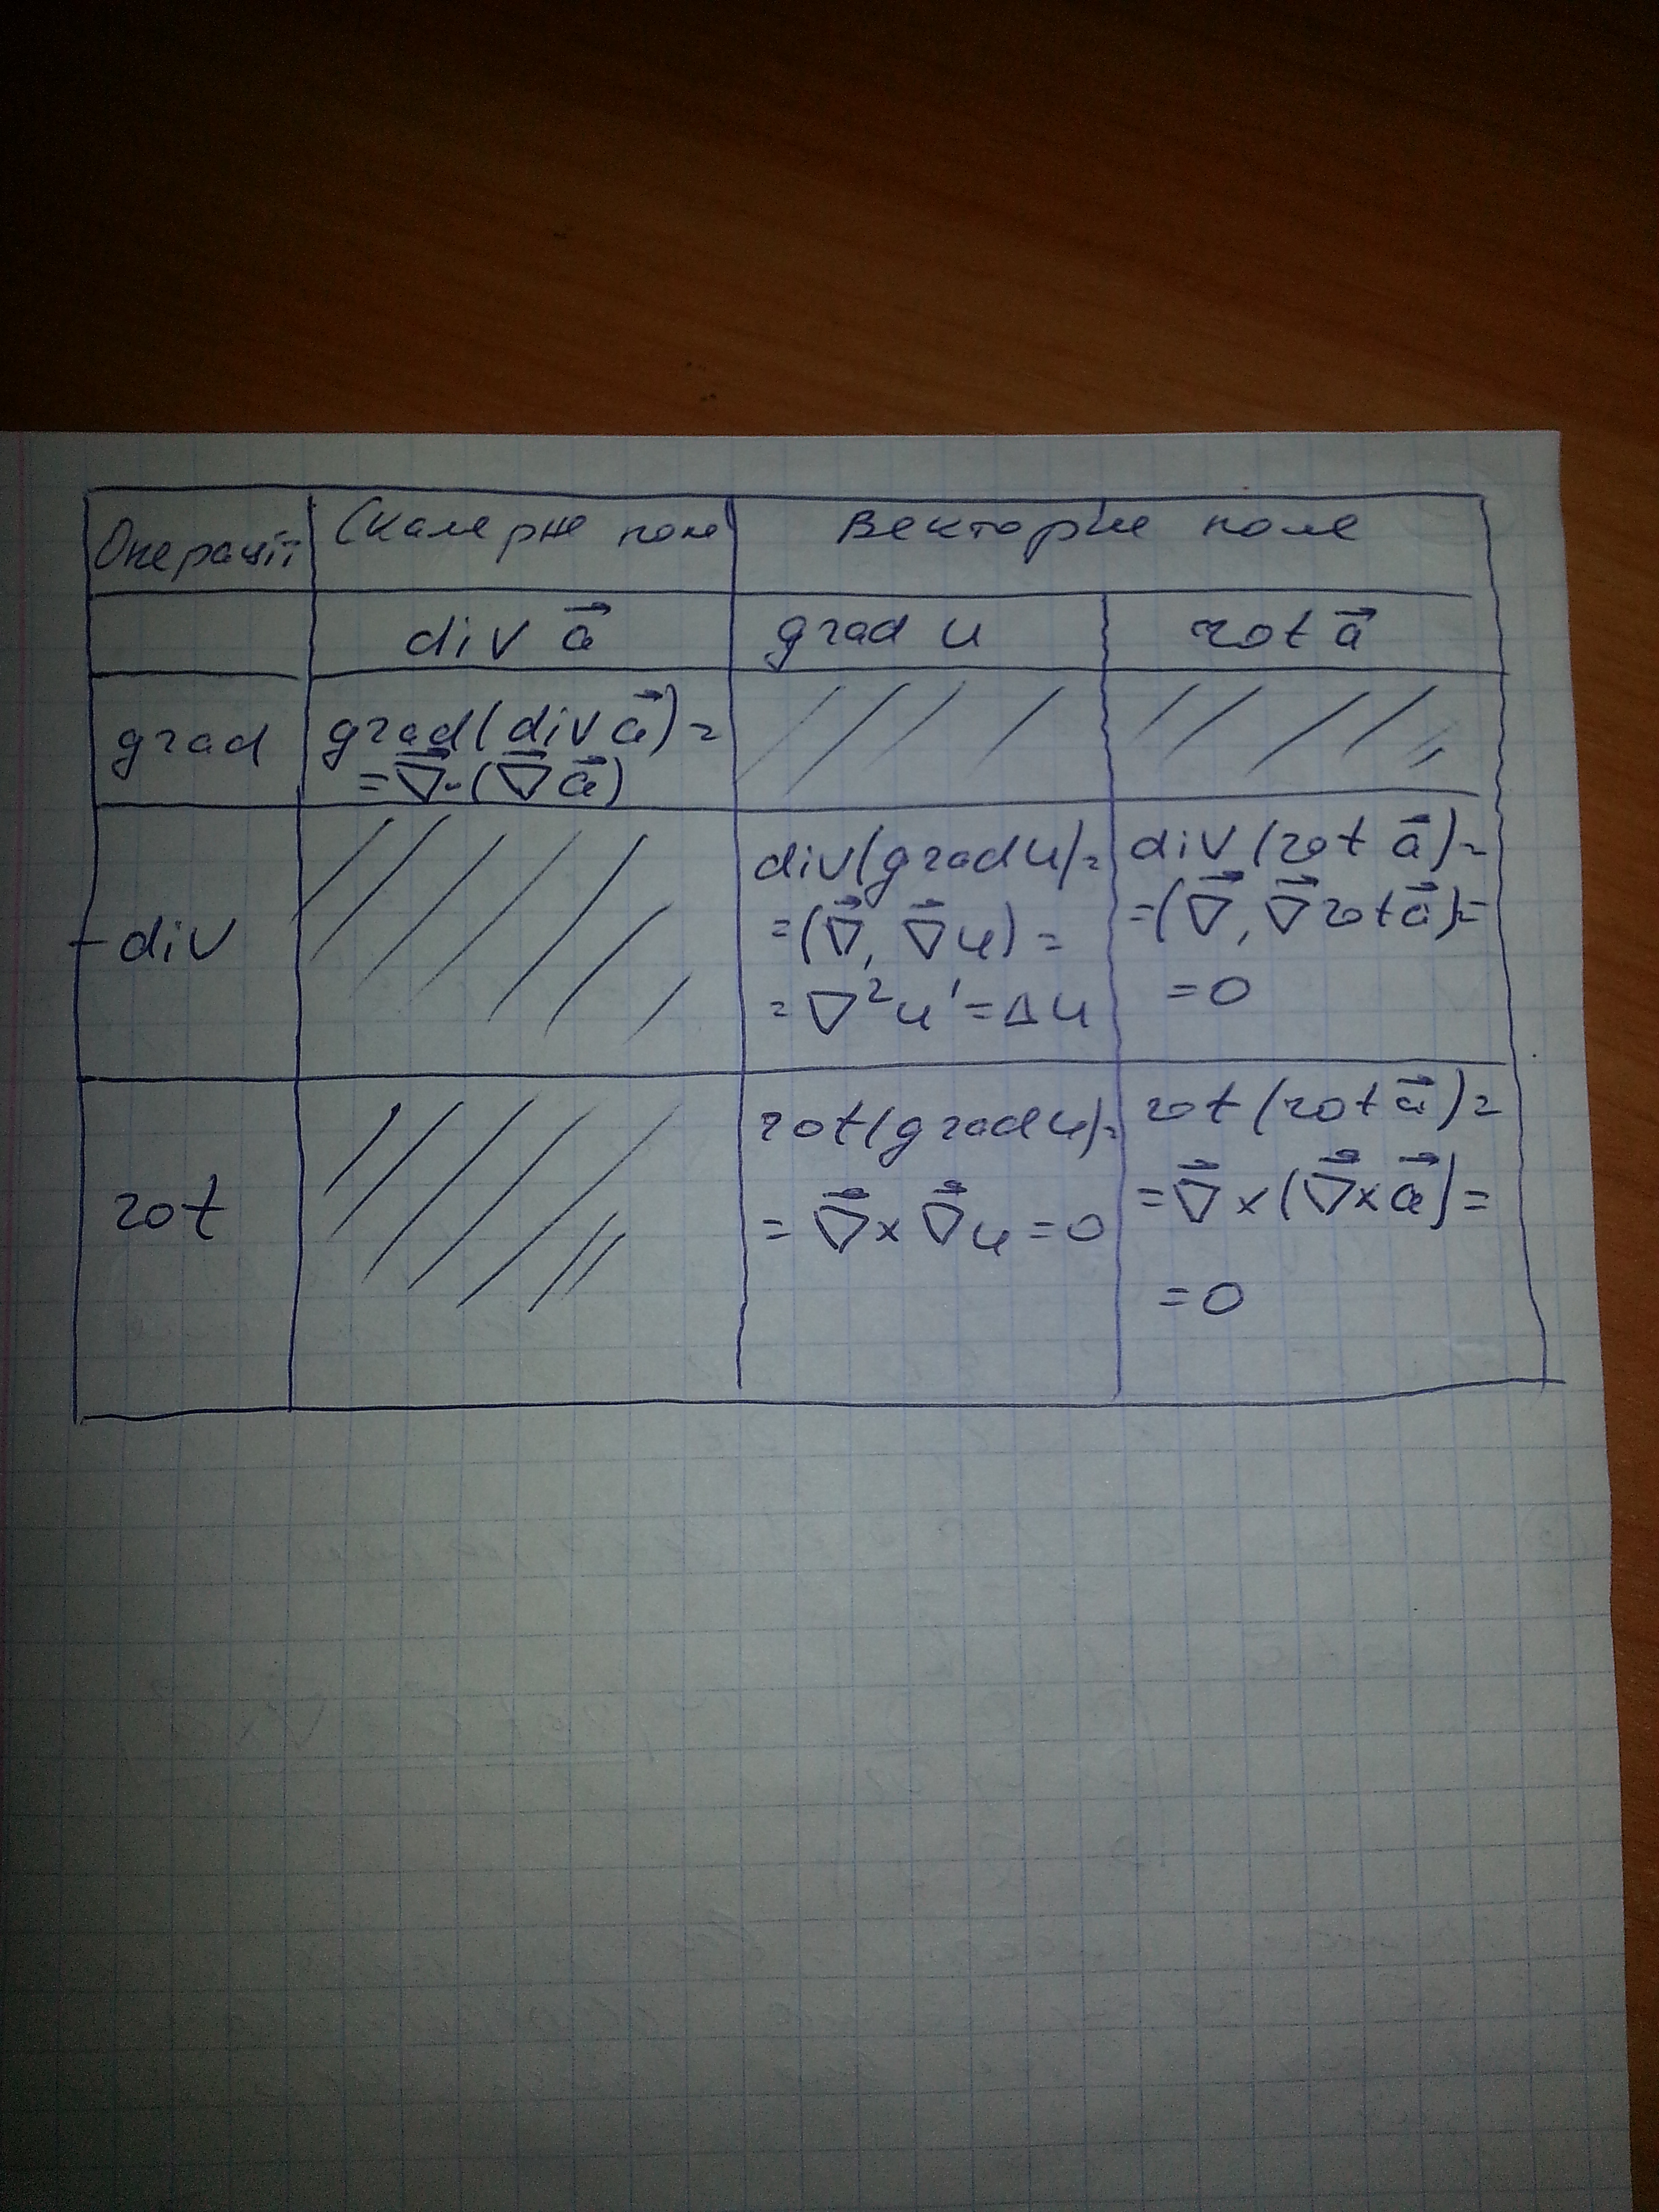 Операції Скалярне поле Векторне поле
div a⃗ grad u rot a⃗
grad grad(div a⃗)=
=∇⃗·(∇⃗ a⃗)
div div(grad u)= div(rot a⃗)=
=(∇⃗, ∇⃗u)= =(∇⃗, ∇⃗ rot a⃗)=
=∇²u'=Δu =0
rot rot(grad u)= rot(rot a⃗)=
=∇⃗×∇⃗u=0 =∇⃗×(∇⃗×a⃗)=
=0